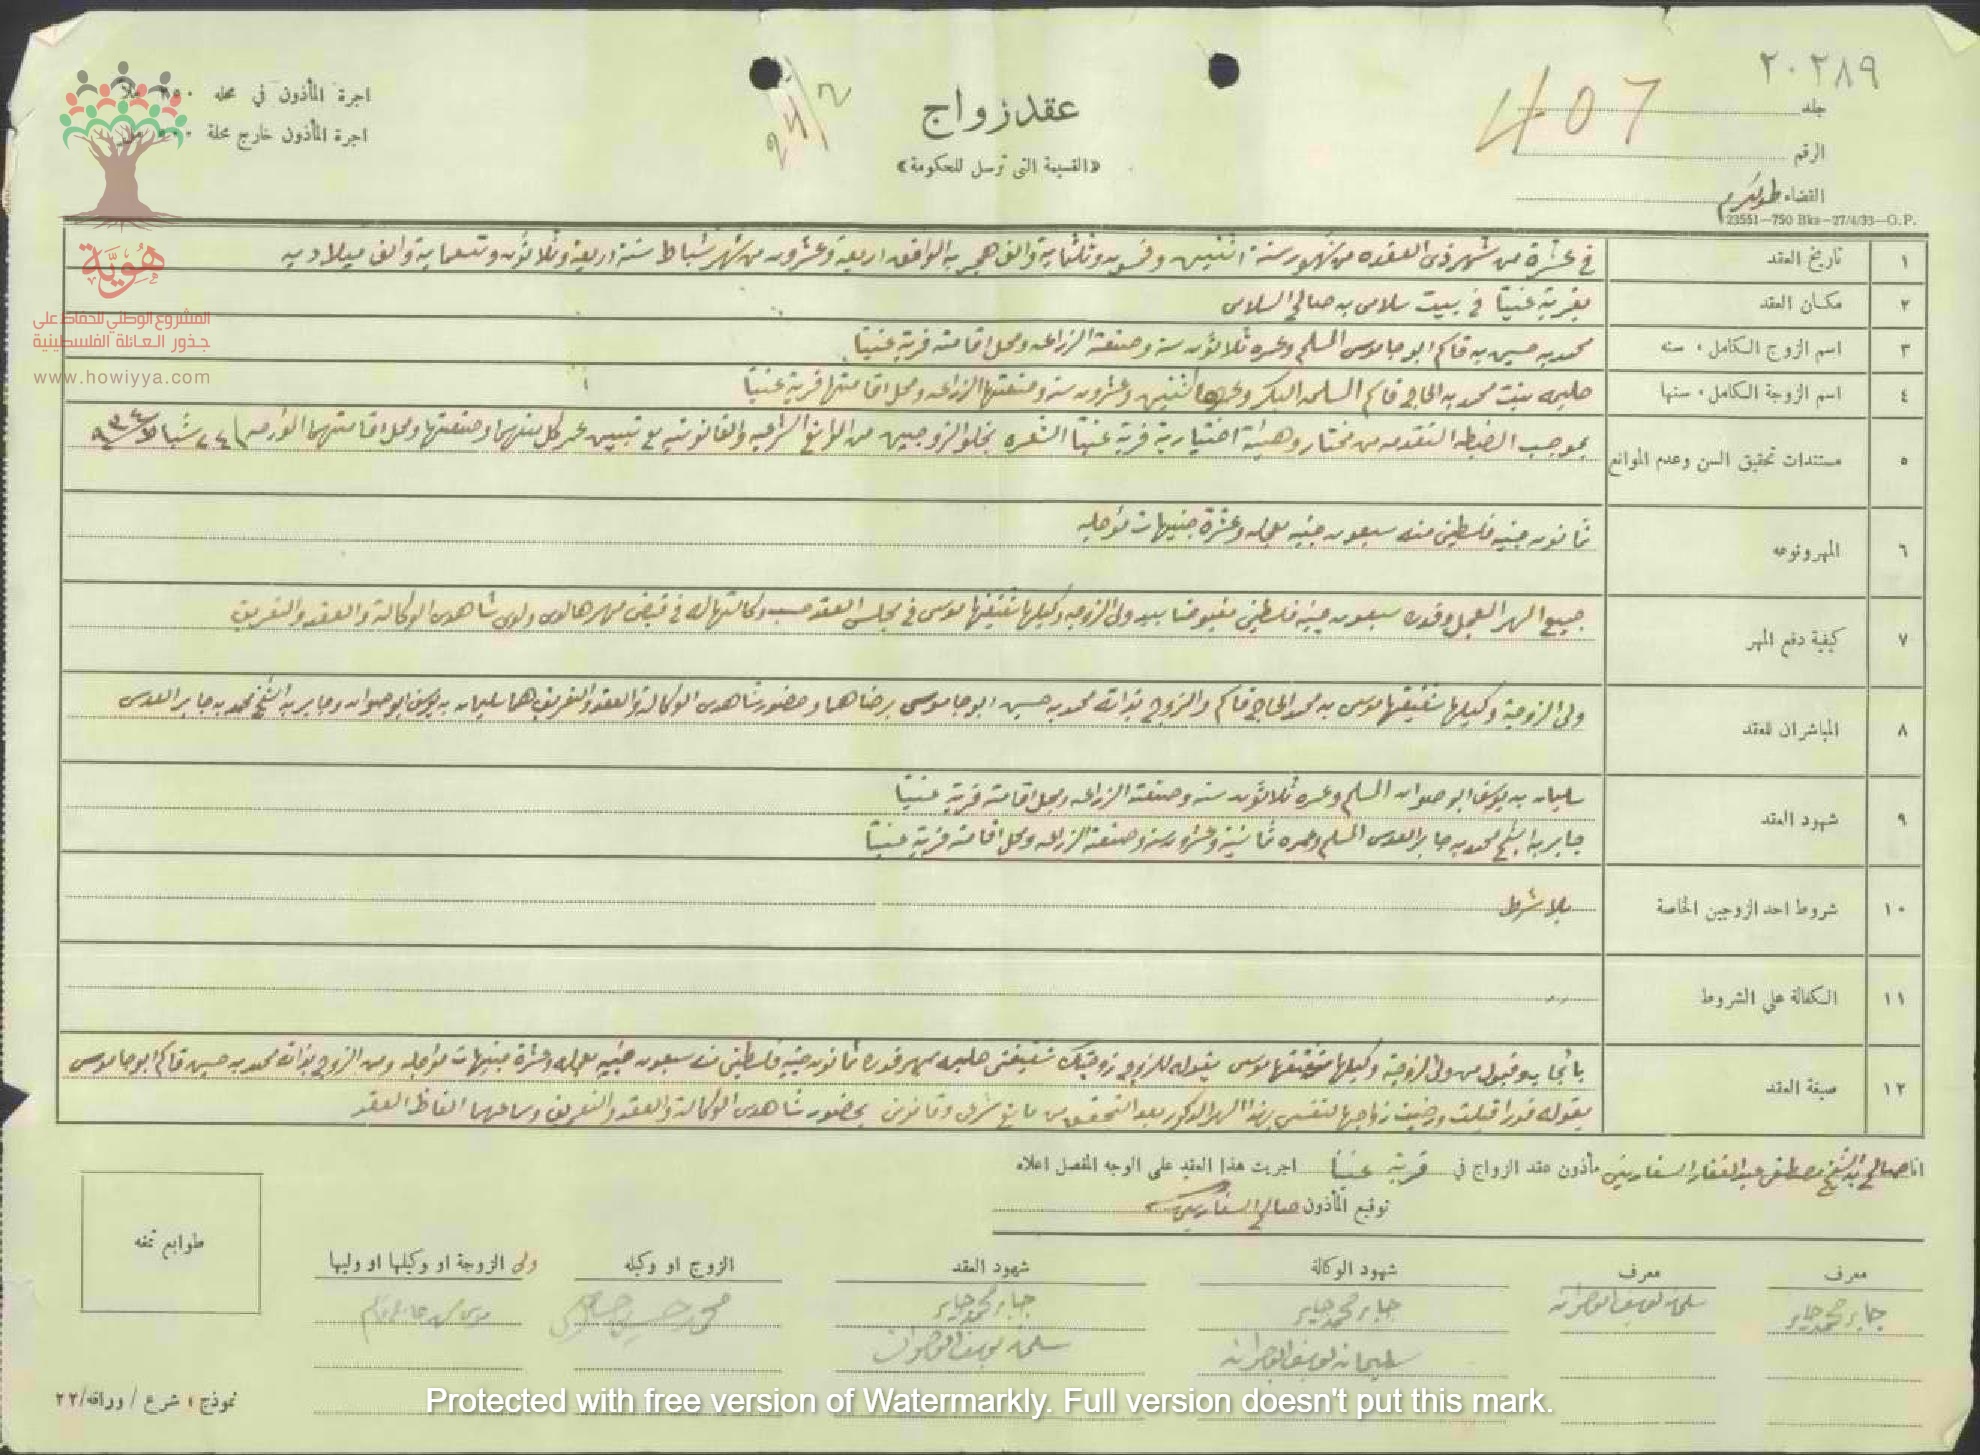 ٢٠٢٨٩
جلد
407
الرقم
القضاء طولكرم
23551—750 Bks—27/4/33—G.P.
عقد زواج
«القسيمة التى ترسل للحكومة»
24/2
اجرة المأذون في محله ٢٥٠ ملاً
اجرة المأذون خارج محلة ٥٠٠
هُوِيَّة
المشروع الوطني للحفاظ على
جذور العائلة الفلسطينية
www.howiyya.com
١ تاريخ العقد في عشرة من شهر ذى القعده من شهور سنة اثنتين وخمسون وثلثماية والف هجريه الموافق اربعة وعشرون من شهر شباط سنة اربعة وثلاثون وتسعماية والف ميلاديه
٢ مكان العقد بقرية عنبتا في بيت سلامه بن صالح السلامه
٣ اسم الزوج الكامل، سنه محمد بن حسين بن قاسم ابو جاموس المسلم وعمره ثلاثون سنة وصنعته الزراعه ومحل اقامته قرية عنبتا
٤ اسم الزوجة الكامل، سنها حليمه بنت محمد بن الحاج قاسم المسلمه البكر وعمرها اثنتين وعشرون سنة وصنعتها الزراعه ومحل اقامتها قرية عنبتا
٥ مستندات تحقيق السن وعدم الموانع بموجب الضبطه المتقدمه من مختار وهيئة اختيارية قرية عنبتا المشعره بخلو الزوجين من الموانع الشرعيه والقانونيه مع تبيين عمر كل منهما وصنعتهما ومحل اقامتهما المؤرخه ٢٤ شباط سنة ٩٣٤
٦ المهر ونوعه ثمانون جنيه فلسطيني منه سبعون جنيه معجله وعشرة جنيهات مؤجله
٧ كيفية دفع المهر جميع المهر المعجل وقدره سبعون جنيه فلسطيني مقبوضا بيد ولى الزوجه وكيلها شقيقها موسى في مجلس العقد حسب وكالتها له في قبض مهرها لدى ولدى شاهدى الوكالة والعقد والتعريف
٨ المباشران للعقد ولى الزوجة وكيلها شقيقها موسى بن محمد الحاج قاسم والزوج بذاته محمد بن حسين ابو جاموس برضاهما وحضور شاهدى الوكالة والعقد والتعريف هما سليمان بن يوسف ابو صوان وجابر بن الشيخ محمد بن جابر العدس
٩ شهود العقد سليمان بن يوسف ابو صوان المسلم وعمره ثلاثون سنة وصنعته الزراعه ومحل اقامته قرية عنبتا
جابر بن الشيخ محمد بن جابر العدس المسلم وعمره ثمانية وعشرون سنة وصنعته الزراعه ومحل اقامته قرية عنبتا
١٠ شروط احد الزوجين الخاصة بلا شرط
١١ الكفالة على الشروط
١٢ صيغة العقد بايجاب وقبول من ولى الزوجة وكيلها شقيقها موسى بقوله للزوج زوجتك شقيقتى حليمه بمهر قدره ثمانون جنيه فلسطيني منه سبعون جنيه معجله وعشرة جنيهات مؤجله ومن الزوج بذاته محمد بن حسين قاسم ابو جاموس
بقوله فورا قبلت ورضيت زواجها لنفسى بهذا المهر المذكور بعد التحقق من مانع شرعى وقانونى بحضور شاهدى الوكالة والعقد والتعريف وسماعهما الفاظ العقد
انا صالح بن الشيخ مصطفى عبد الغفار السفاريني مأذون عقد الزواج في قرية عنبتا اجريت هذا العقد على الوجه المفصل اعلاه
توقيع المأذون صالح السفاريني
معرف
جابر محمد جابر
معرف
سليمان يوسف ابو صوان
شهود الوكالة
جابر محمد جابر
سليمان يوسف ابو صوان
شهود العقد
جابر محمد جابر
سليمان يوسف ابو صوان
الزوج او وكيله
محمد حسين
ولى الزوجة او وكيلها او وليها
طوابع تمغه
نموذج ١ شرع / وراقه/٢٢
Protected with free version of Watermarkly. Full version doesn't put this mark.